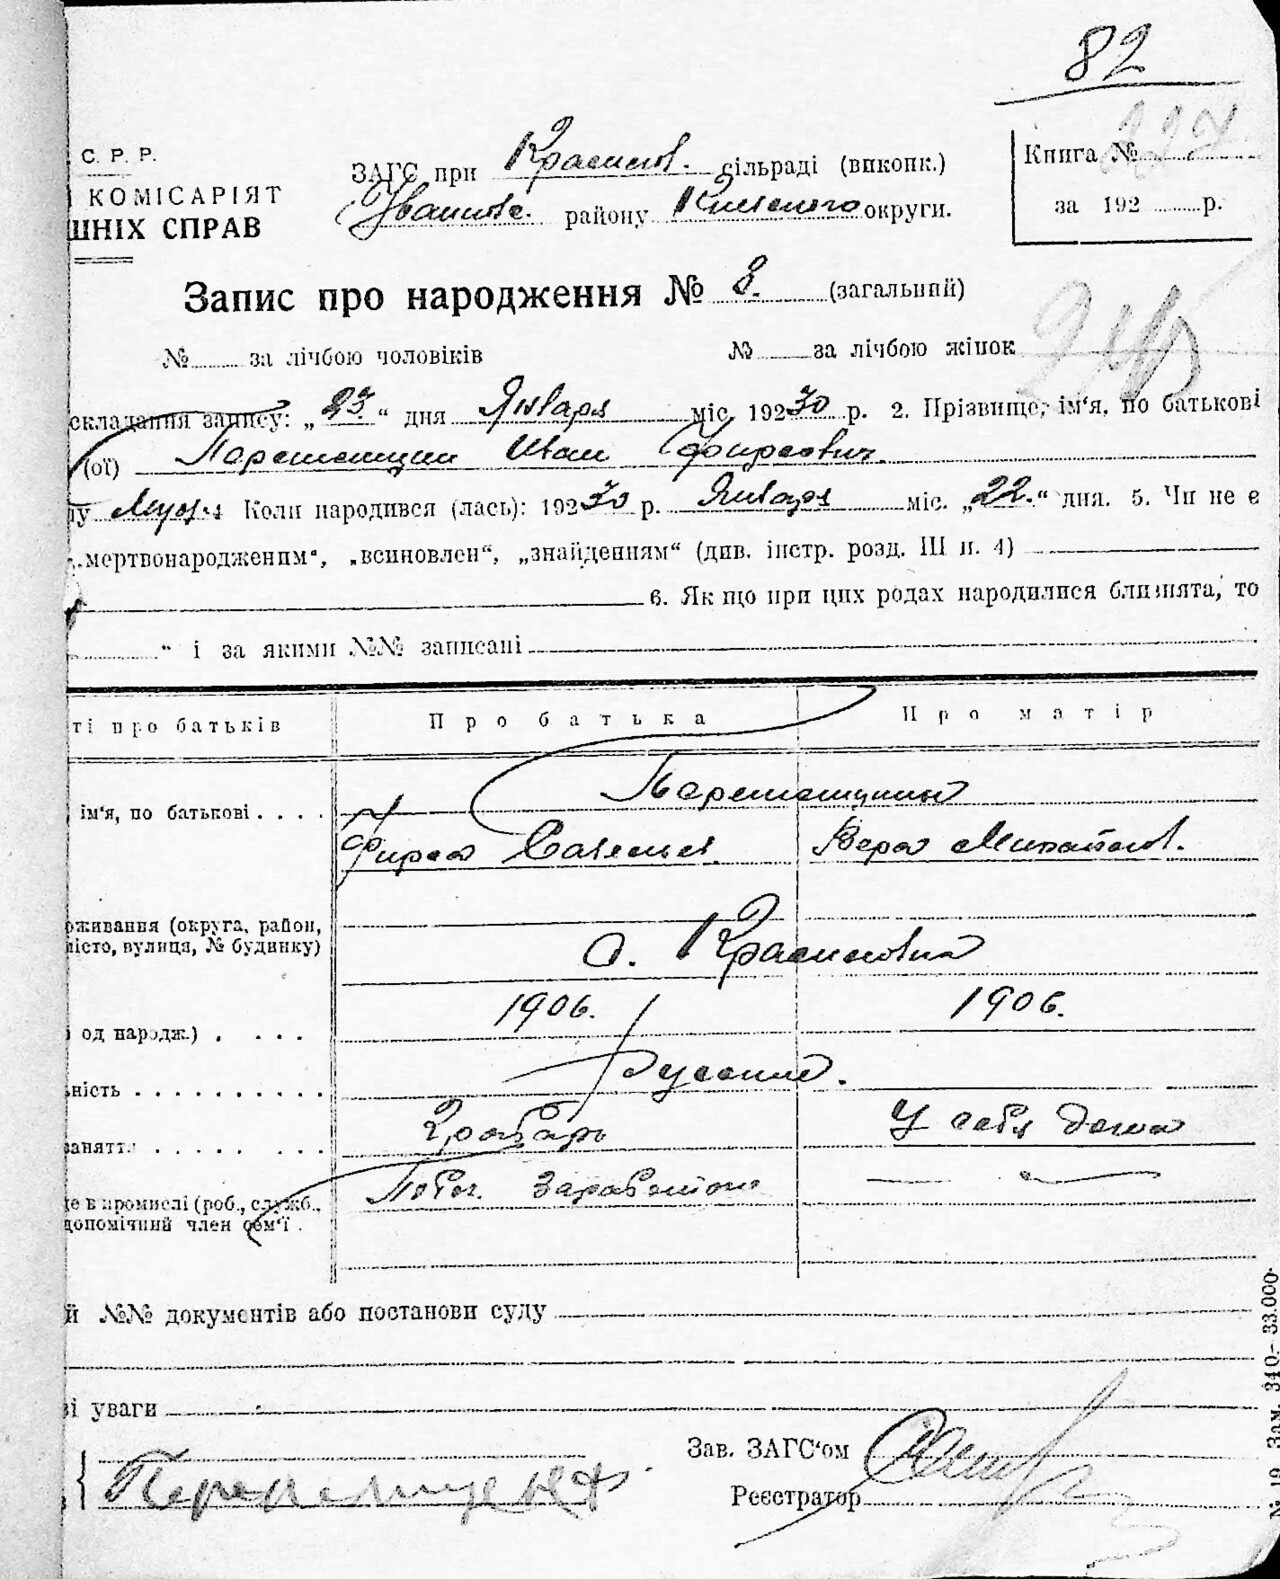 82
227
С. Р. Р.
КОМІСАРІЯТ
ШНІХ СПРАВ
ЗАГС при Красилов. сільраді (виконк.)
Іванков. району Київского округи.
Книга №
за 192 р.
Запис про народження № 8. (загальний)
№ за лічбою чоловіків № за лічбою жінок
складання запису: „23“ дня Января міс. 19230 р. 2. Прізвище, ім‘я, по батькові
(ої) Иван Фирсович
Муж. Коли народився (лась): 19230 р. Января міс. „22.“ дня. 5. Чи не є
„мертвонародженим“, „всиновлен“, „знайденням“ (див. інстр. розд. III п. 4)
6. Як що при цих родах народилися близнята, то
“ і за якими №№ записані
ті про батьків Про батька Про матір
ім‘я, по батькові . . . .
Фирса Савельев. Вера Михайлов.
оживання (округа, район,
місто, вулиця, № будинку)
с. Красиловка
од народж.) . . . . 1906. 1906.
ьність . . . . . . . . . . . Русские.
заняття . . . . . . . . Грабарь У себя дома
це в промислі (роб., служб.,
допомічний член сем‘ї .
й №№ документів або постанови суду
ві уваги
Зав. ЗАГС‘ом
Реєстратор
№ 19 Зам. 340.– 33.000.